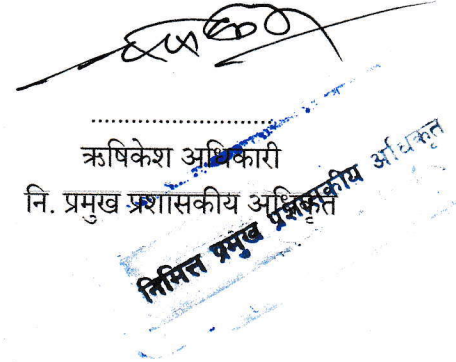 ........................
ऋषिकेश अधिकारी
नि. प्रमुख प्रशासकीय अधिकृत
निमित्त प्रमुख प्रशासकीय अधिकृत